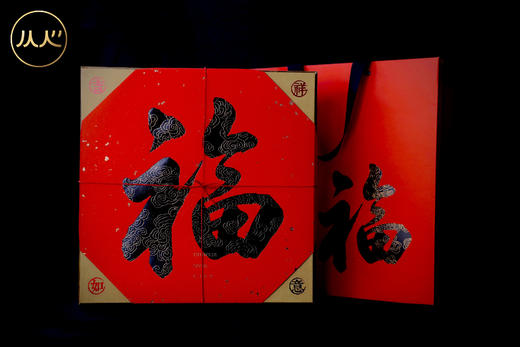 从心
吉
祥
福
福
如
意